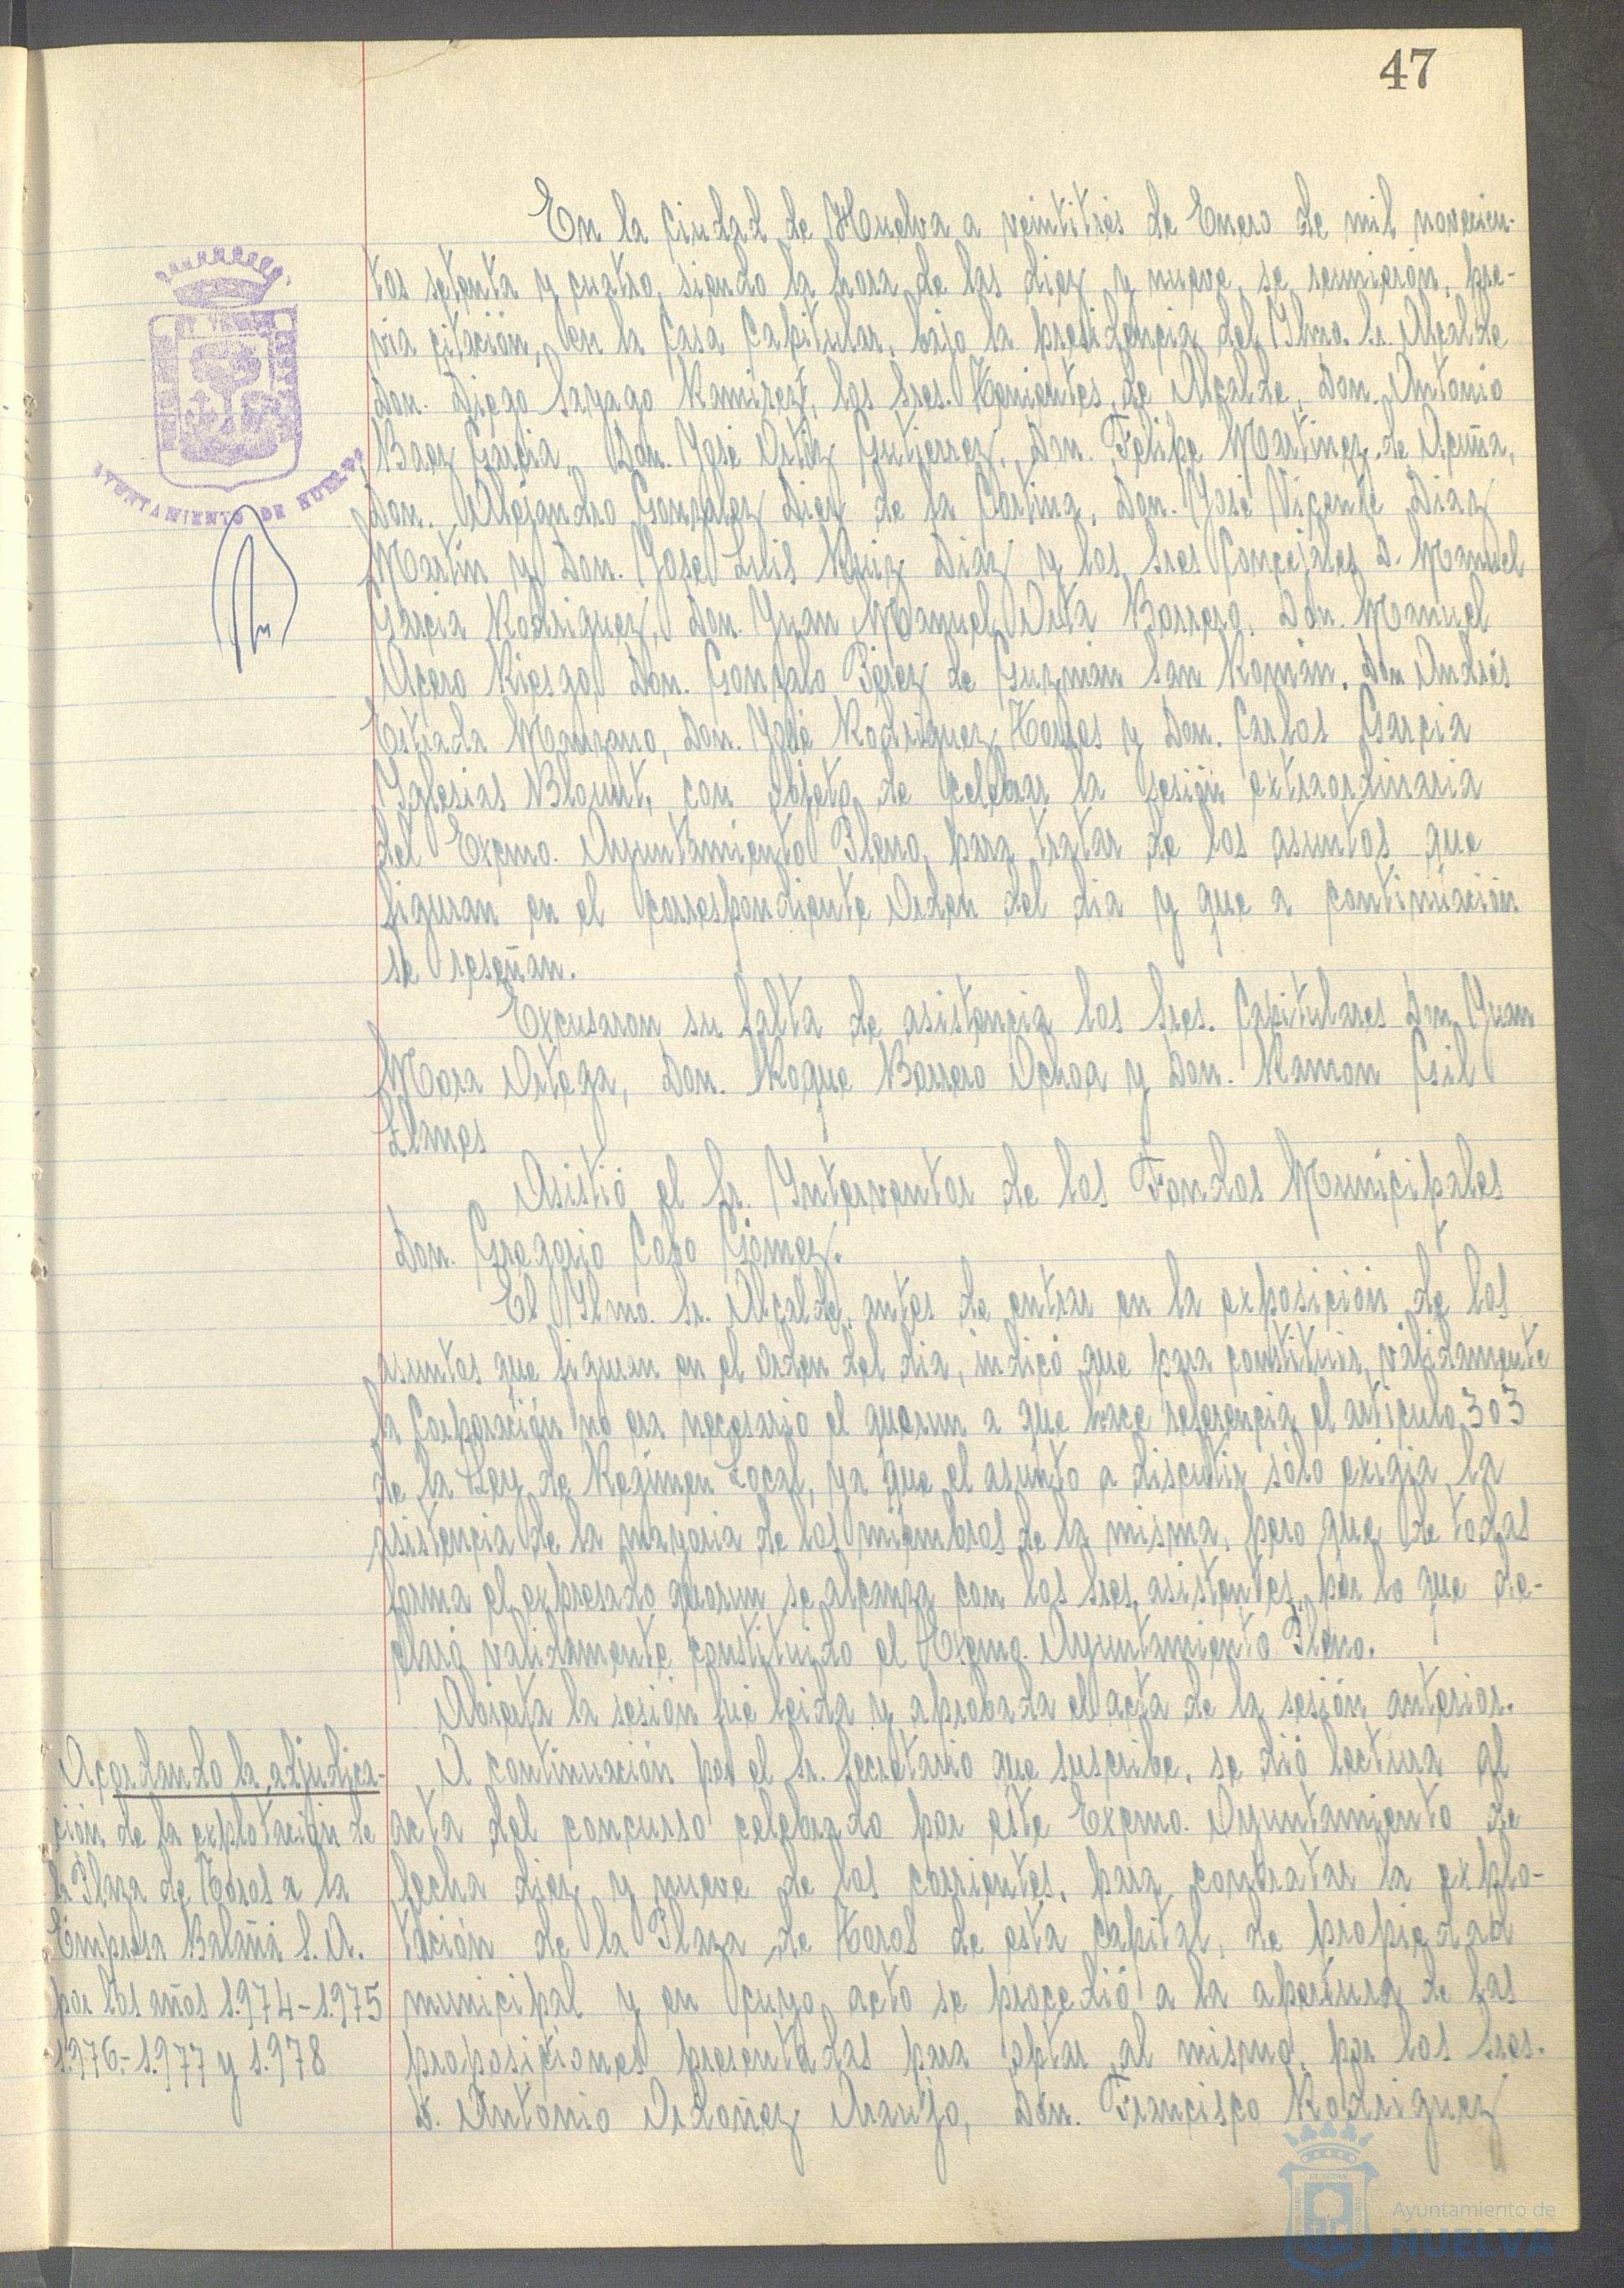 47
En la Ciudad de Huelva a veintitrés de Enero de mil novecien-
tos setenta y cuatro, siendo la hora de las diez y nueve, se reunierón, pre-
via citación, en la Casa Capitular, bajo la presidencia del Ylmo. Sr. Alcalde
Don. Diego Sayago Ramirez, los Sres. Tenientes de Alcalde, Don. Antonio
Baez Garcia, Don. José Ortiz Gutierrez, Don. Felipe Martinez de Acuña,
Don. Alejandro Gonzalez Diez de la Cortina, Don. José Vicente Diaz
Martín y Don. José Luis Ruiz Diaz y los Sres Concejales D. Manuel
Garcia Rodriguez, Don. Juan Manuel Orta Borrero, Don. Manuel
Acero Riesgo, Don. Gonzalo Pérez de Guzmán San Román, Don Andrés
Estrada Manzano, Don. José Rodriguez Torres y Don. Carlos Garcia
Yglesias Blount, con objeto de celebrar la sesión extraordinaria
del Excmo. Ayuntamiento Pleno, para tratar de los asuntos que
figuran en el correspondiente Orden del dia y que a continuación
se reseñan.
Excusaron su falta de asistencia los Sres. Capitulares Don Juan
Mora Ortega, Don. Roque Barrero Ochoa y Don. Ramon Gil
Asistió el Sr. Ynterventor de los Fondos Municipales
Don. Gregorio Cobo Gómez.
El Ylmo. Sr. Alcalde, antes de entrar en la exposición de los
asuntos que figuran en el orden del dia, indicó que para constituir validamente
la Corporación no era necesario el quorun a que hace referencia el articulo 303
de la Ley de Regimen Local, ya que el asunto a discutir sólo exigia la
asistencia de la mayoria de los miembros de la misma, pero que de todas
forma el expresado quorun se alcanza con los Sres. asistentes, por lo que de-
claró validamente constituido el Excmo. Ayuntamiento Pleno.
Abierta la sesión fué leida y aprobada el acta de la sesión anterior.
Acordando la adjudica-
ción de la explotación de
la Plaza de Toros a la
Empresa Balañá S. A.
por los años 1.974-1.975
1.976-1.977 y 1.978
A continuación por el Sr. Secretario que suscribe, se dió lectura al
acta del concurso celebrado por este Excmo. Ayuntamiento de
fecha diez y nueve de los corrientes, para contratar la explo-
tación de la Plaza de Toros de esta Capital, de propiedad
municipal y en cuyo acto se procedió a la apertura de las
proposiciones presentadas para optar al mismo, por los Sres.
D. Antonio Ordoñez Araujo, Don. Francisco Rodriguez
AYUNTAMIENTO DE HUELVA
Ayuntamiento de
HUELVA